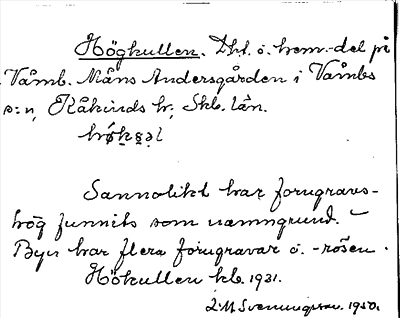 Högkullen. Dht. o. hem.-del på
Våmb. Måns Andersgården i Våmbs
s:n, Kåkinds hr; Skb. län.
Sannolikt har forngravs-
hög funnits som namngrund. –
Byn har flera forngravar o. -rösen.
Hökullen kb. 1931.
Svenungsson. 1950.